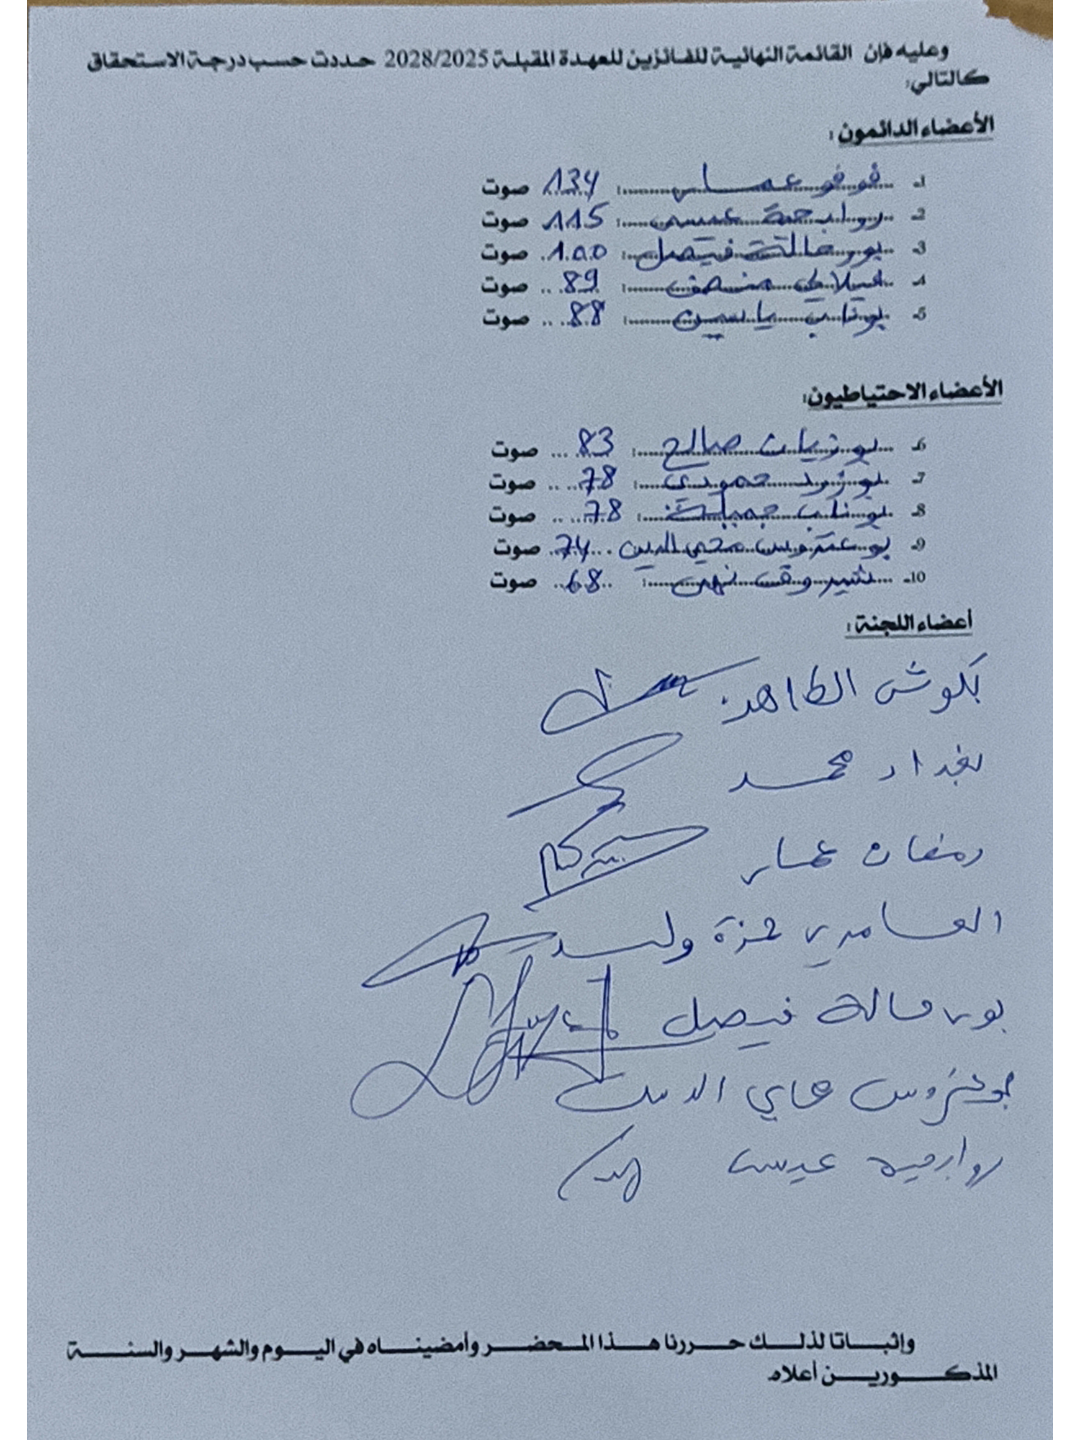 وعليه فإن القائمة النهائية للفائزين للعهدة المقبلة 2028/2025 حددت حسب درجة الاستحقاق
كالتالي:
الأعضاء الدائمون:
1- فوفو عمار: 134 صوت
2- روابحية عيسى: 115 صوت
3- بورحالة فيصل: 100 صوت
4- منصف: 89 صوت
5- بوناب ياسين: 88 صوت
الأعضاء الاحتياطيون:
6- بوزيان صالح: 83 صوت
7- بوزيد حمودي: 78 صوت
8- بوناب جميلة: 78 صوت
9- بوعتروس محي الدين 74 صوت
10- نهى: 68 صوت
أعضاء اللجنة:
بكوش الطاهر
بغداد محمد
رمضان عمار
العامري حمزة وليد
بورحالة فيصل
بوعتروس محي الدين
روابحية عيسى
وإثباتا لذلك حررنا هذا المحضر وأمضيناه في اليوم والشهر والسنة
المذكورين أعلاه